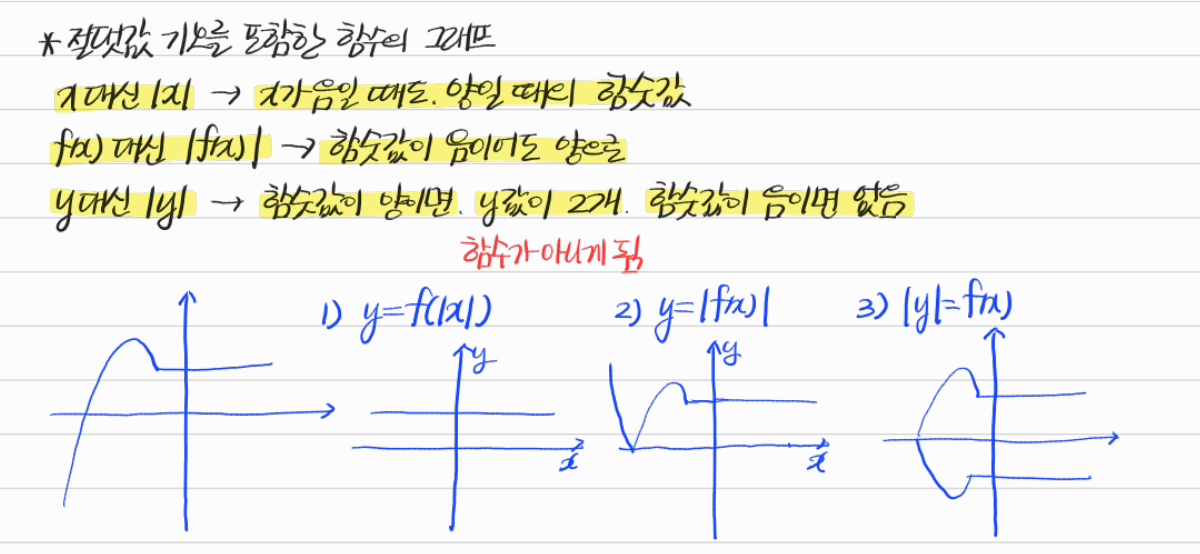 * 절댓값 기호를 포함한 함수의 그래프
x대신 |x| → x가 음일 때도. 양일 때의 함숫값
f(x) 대신 |f(x)| → 함숫값이 음이어도 양으로
y대신 |y| → 함숫값이 양이면. y값이 2개. 함숫값이 음이면 없음
함수가 아니게 됨
1) y=f(|x|) 2) y=|f(x)| 3) |y|=f(x)
y y
x x